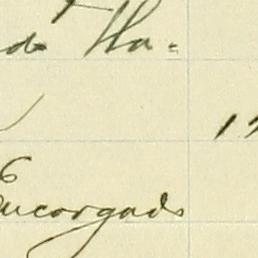 de Ha-
Encargado